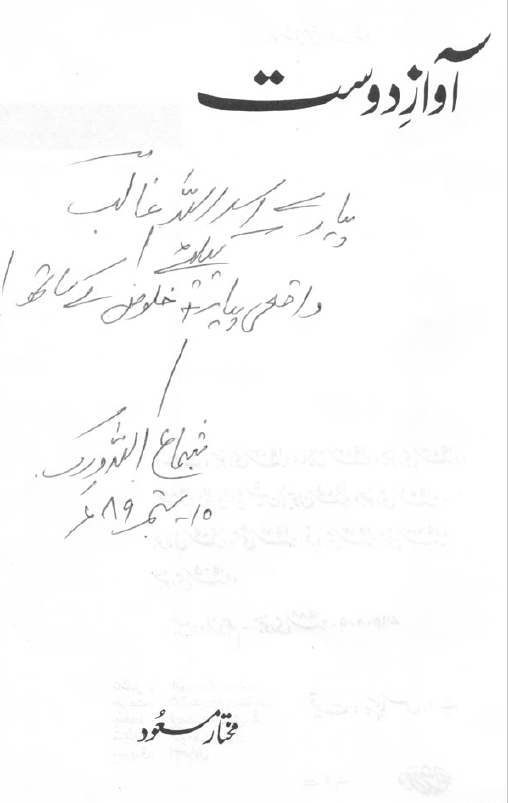 آوازِ دوست
پیارے اسد اللہ غالب
کیلئے
واقعی پیار + خلوص کے ساتھ!
شجاع اللہ ورک
۱۵ ستمبر ۸۹ء
مختار مسعُود